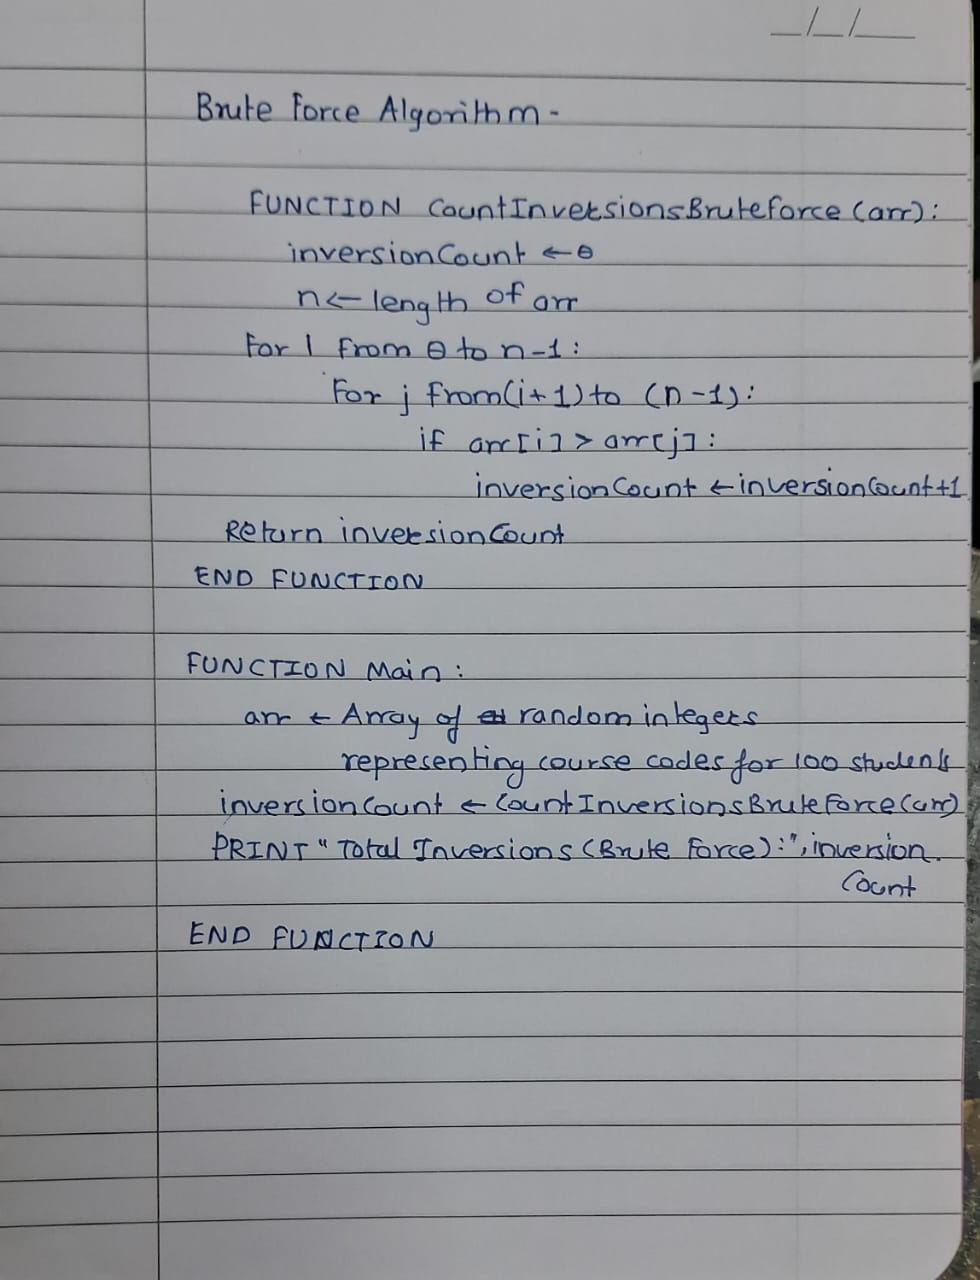 _/_/__
Brute Force Algorithm -
FUNCTION CountInversionsBruteforce (arr):
inversionCount ← 0
n ← length of arr
For I from 0 to n-1:
For j from (i+1) to (n-1):
if arr[i] > arr[j]:
inversionCount ← inversionCount+1
Return inversionCount
END FUNCTION
FUNCTION Main:
arr ← Array of random integers
representing course codes for 100 students
inversionCount ← CountInversionsBruteForce(arr)
PRINT "Total Inversions (Brute Force):", inversion.
Count
END FUNCTION